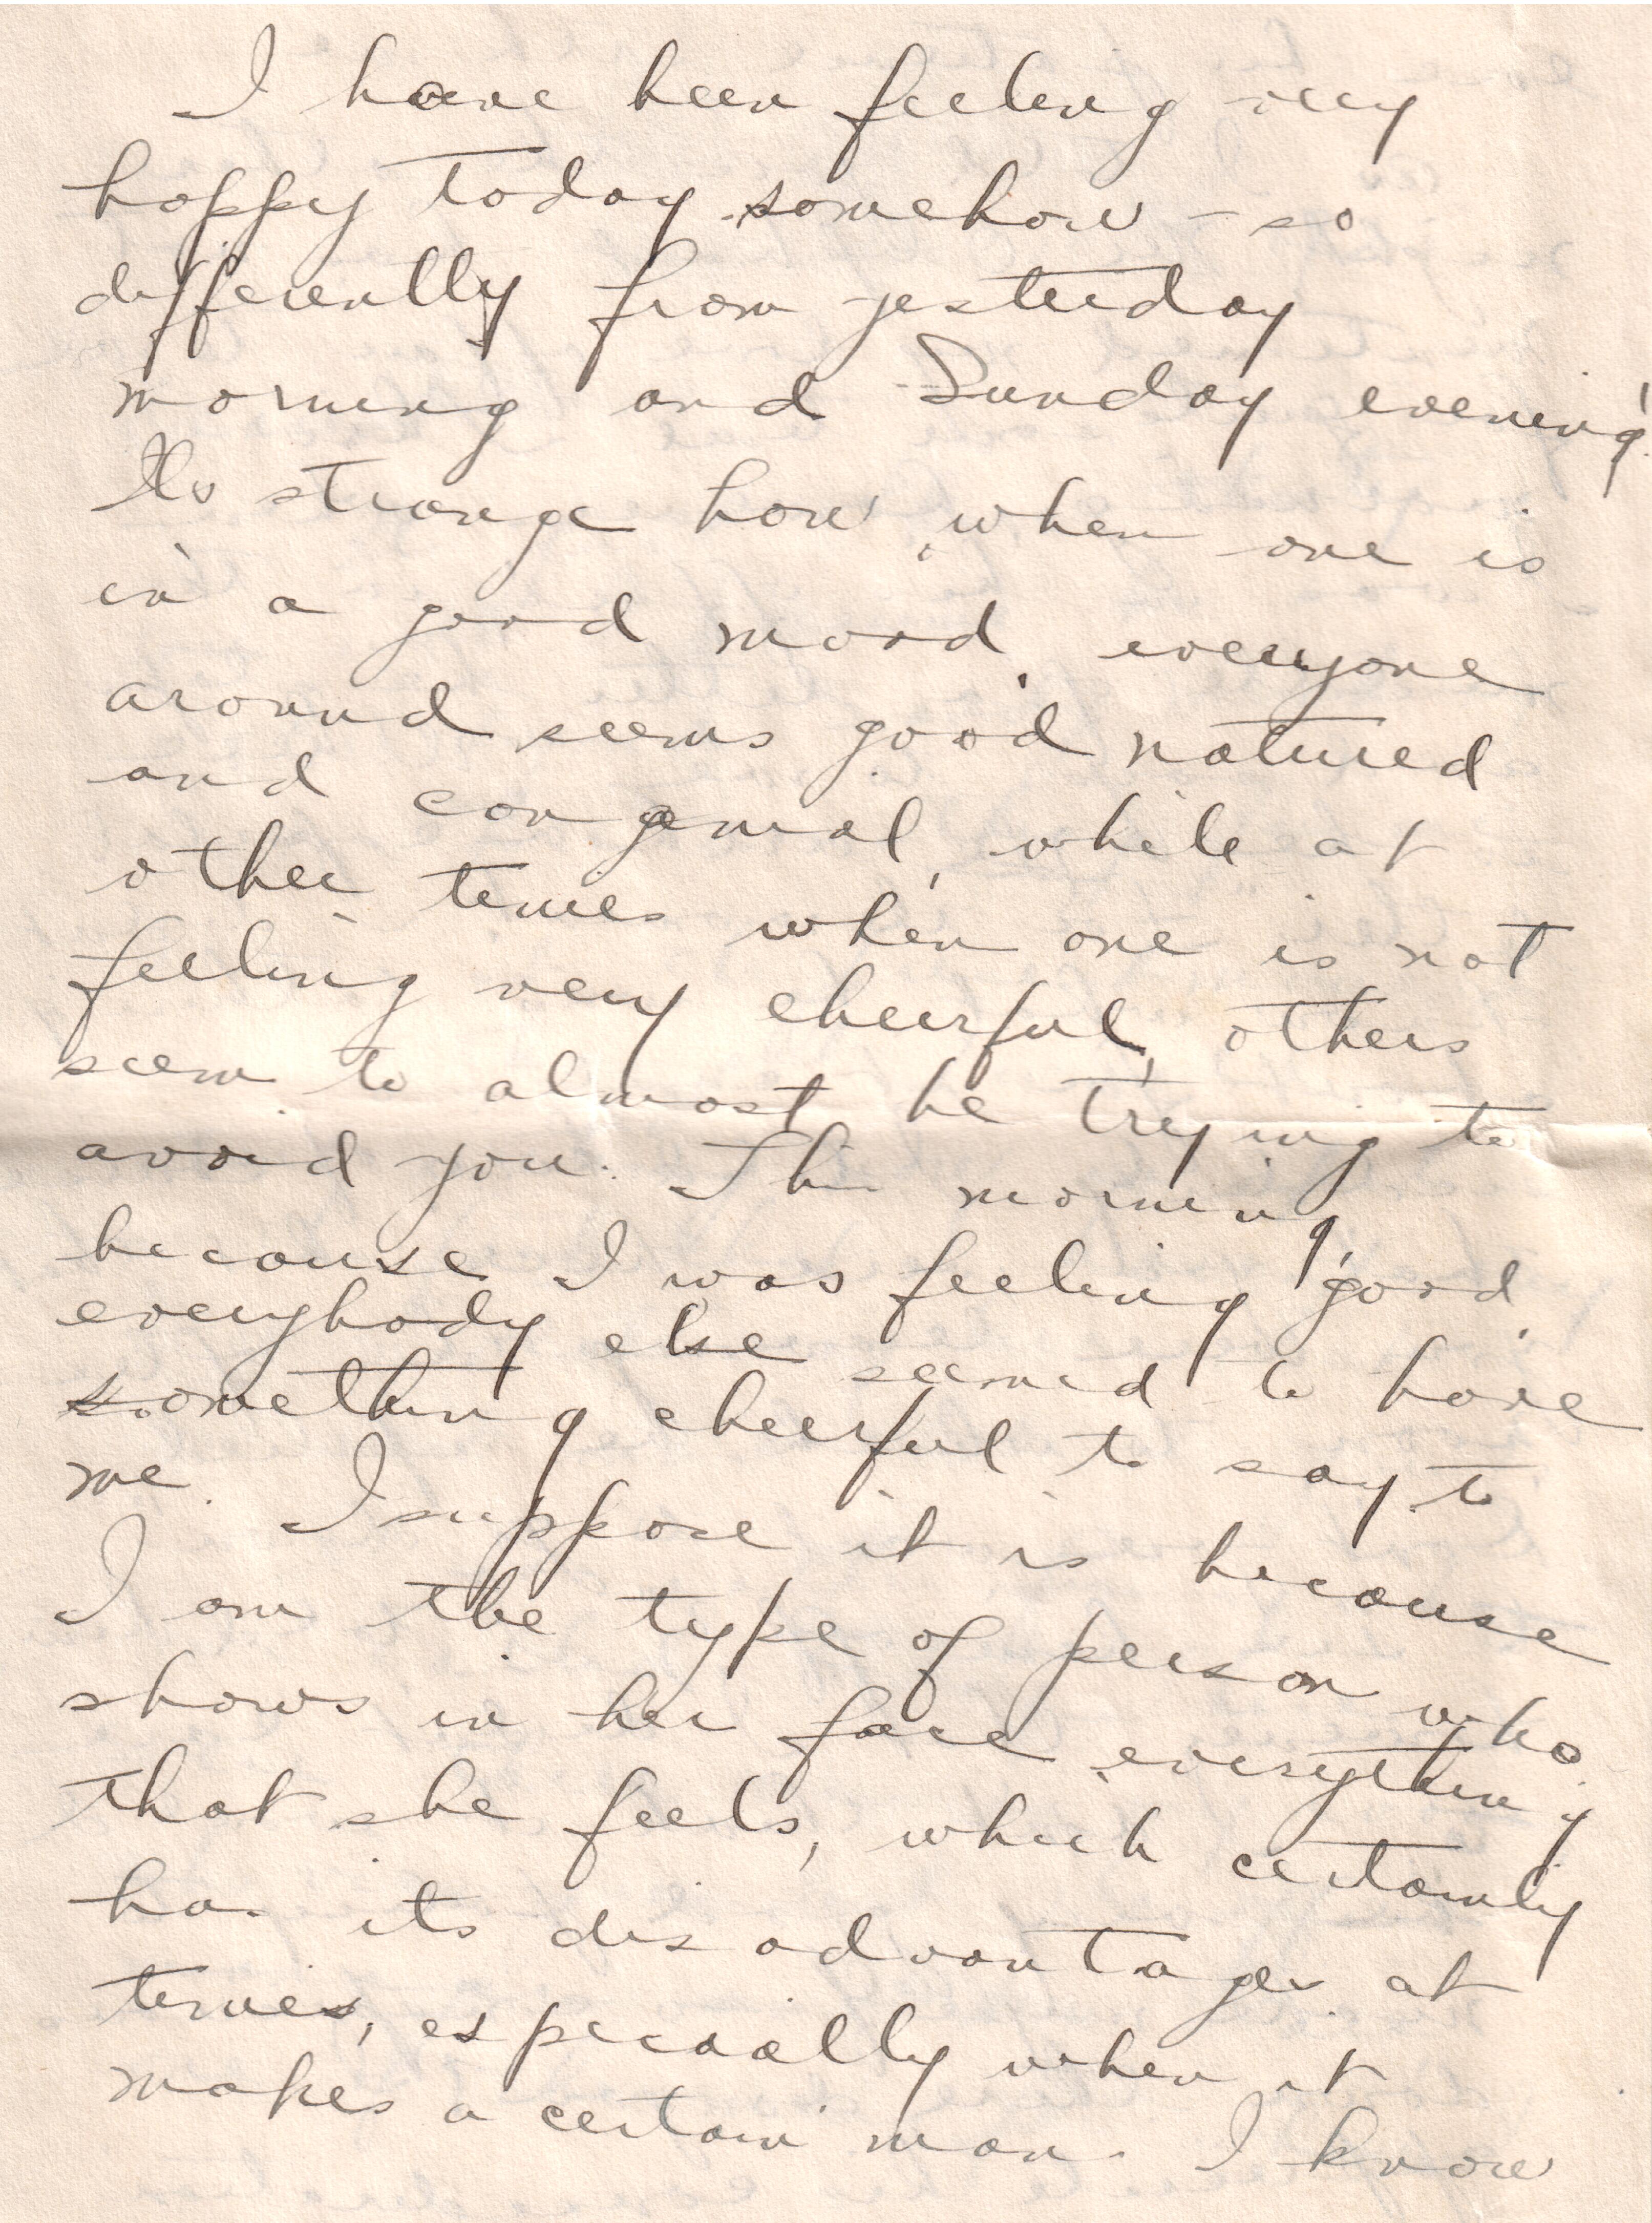 I have been feeling very
happy today somehow - so
differently from yesterday
morning and Sunday evening!
It's strange how, when one is
in a good mood, everyone
around seems good natured
and congenial, while at
other times when one is not
feeling very cheerful, others
seem to almost be trying to
avoid you. This morning,
because I was feeling good,
everybody else seemed to have
something cheerful to say to
me. I suppose it is because
I am the type of person who
shows in her face everything
that she feels, which certainly
has its disadvantages at
times, especially when it
makes a certain man I know